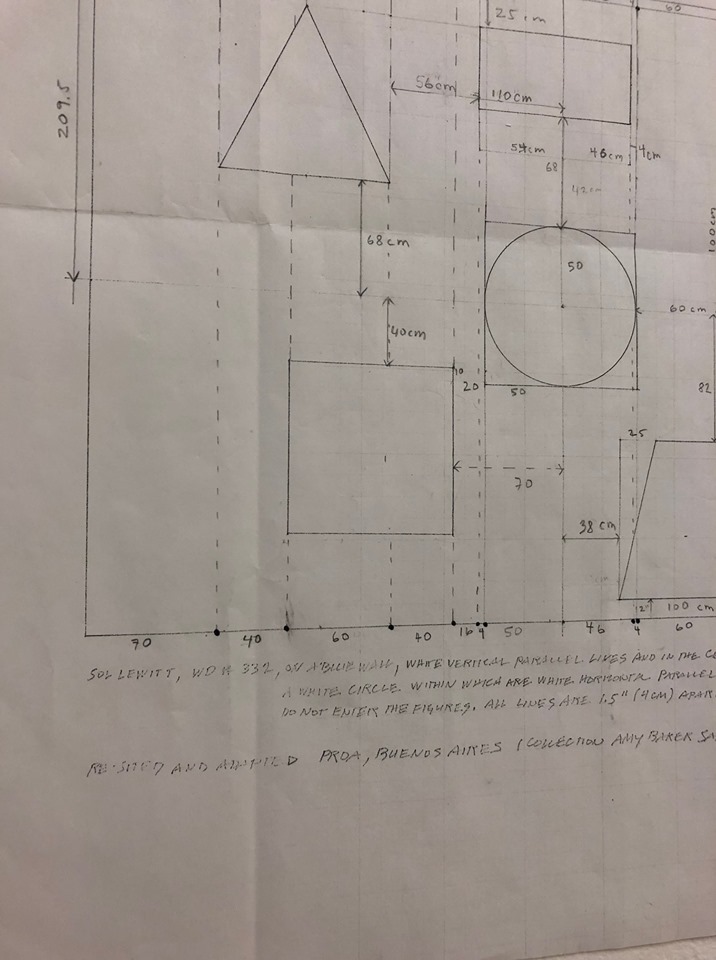 60
25 cm
209.5
56cm
110cm
54cm
46cm
4cm
68
42cm
100cm
68cm
50
60 cm
40cm
10
20
50
82
25
70
38 cm
12
100 cm
70
40
60
40
16
4
50
46
4
60
SOL LEWITT, WD # 332, ON A BLUE WALL, WHITE VERTICAL PARALLEL LINES AND IN THE CE
A WHITE CIRCLE WITHIN WHICH ARE WHITE HORIZONTAL PARALLEL
DO NOT ENTER THE FIGURES. ALL LINES ARE 1.5" (4CM) APAR
AND PROA, BUENOS AIRES (COLLECTION AMY BAKER SA